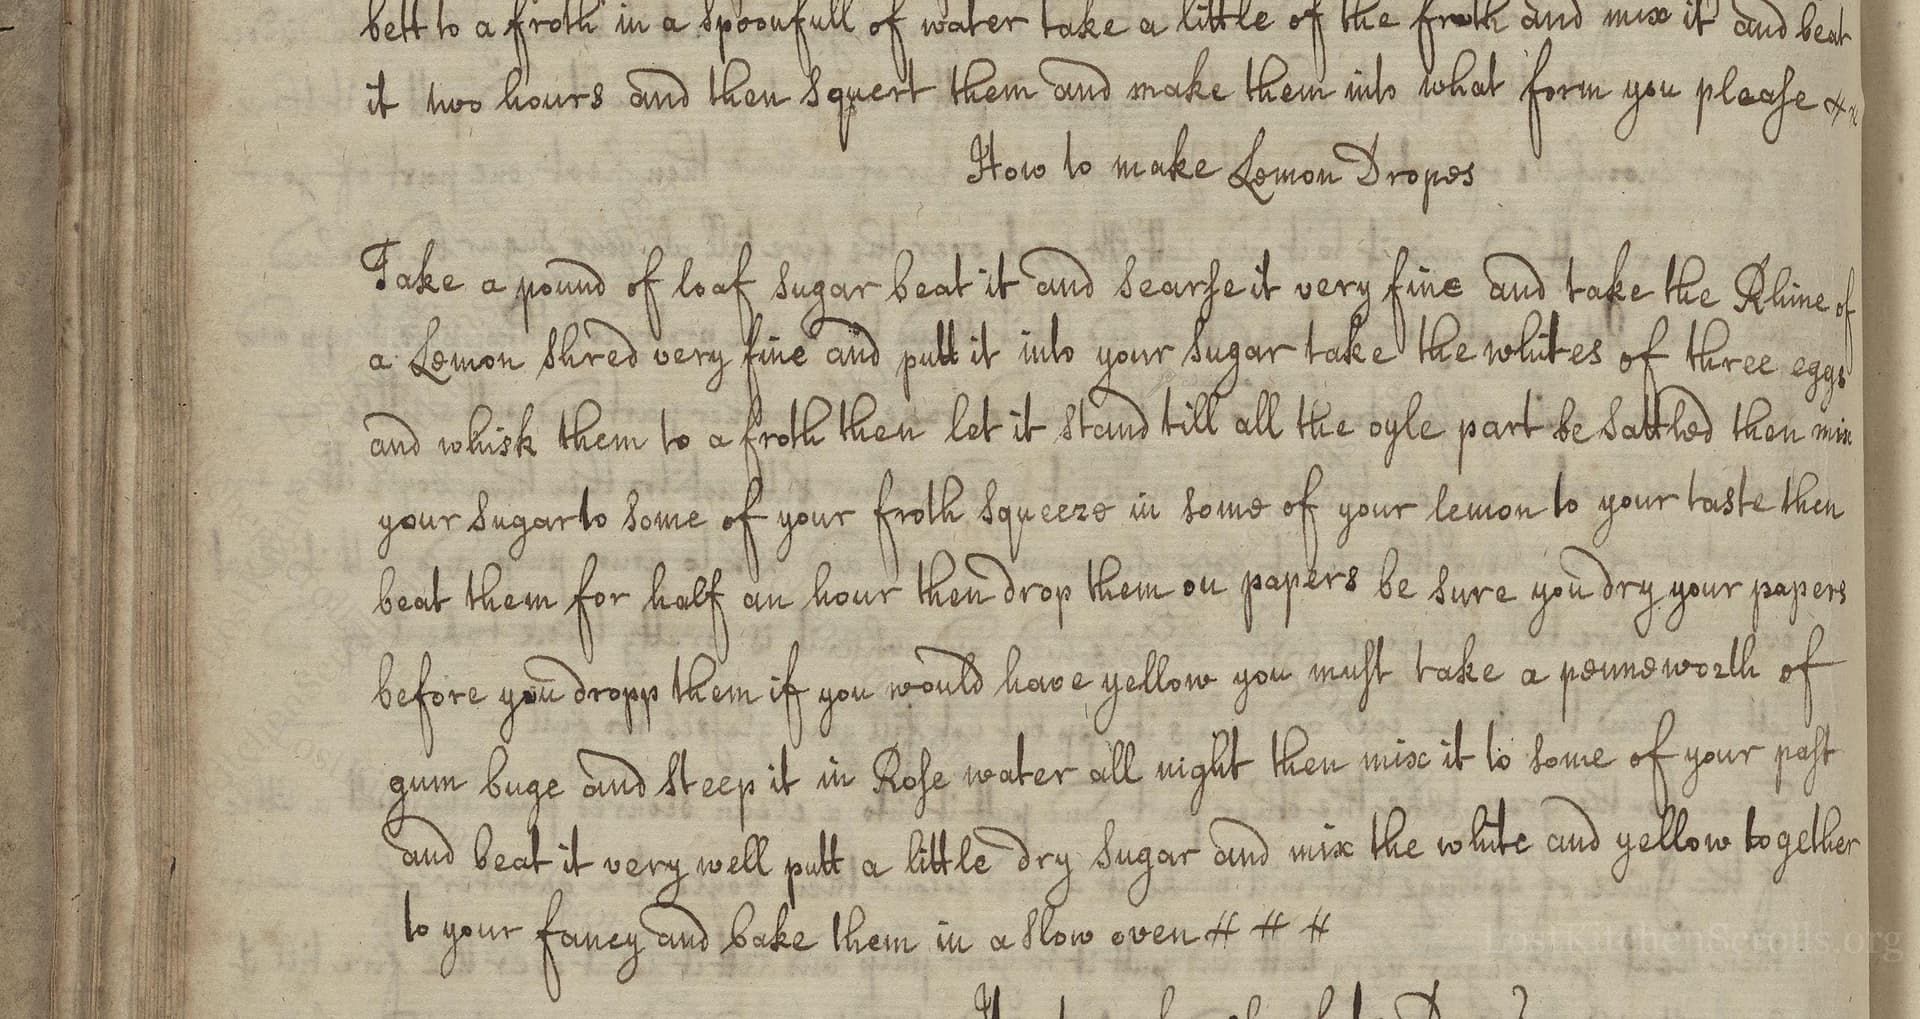 bett to a froth in a spoonfull of water take a little of the froth and mix it and beat
it two hours and then squert them and make them into what form you please
How to make Lemon Dropes
Take a pound of loaf sugar beat it and searse it very fine and take the Rhine of
a Lemon shred very fine and putt it into your sugar take the whites of three eggs
and whisk them to a froth then let it stand till all the oyle part be sattled then mix
your sugar to some of your froth squeeze in some of your lemon to your taste then
beat them for half an hour then drop them on papers be sure you dry your papers
before you dropp them if you would have yellow you must take a penneworth of
gum buge and steep it in Rose water all night then mix it to some of your past
and beat it very well putt a little dry sugar and mix the white and yellow together
to your fancy and bake them in a slow oven # # #